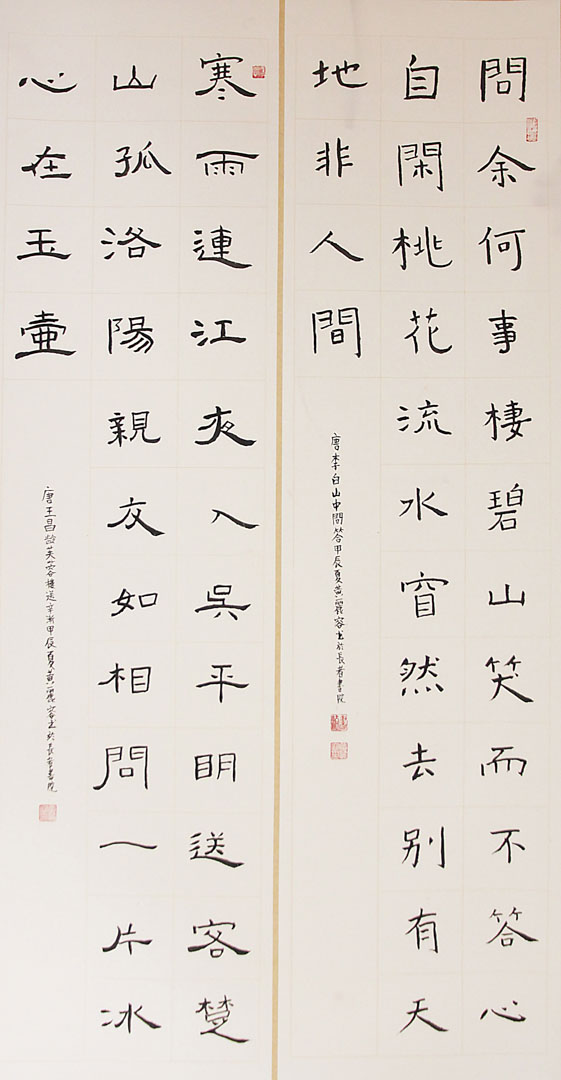 問余何事棲碧山笑而不答心
自閑桃花流水窅然去别有天
地非人間
唐李白山中問答甲辰夏黃麗容书於長者書院
寒雨連江夜入吳平明送客楚
山孤洛陽親友如相問一片冰
心在玉壺
唐王昌龄芙蓉樓送辛漸甲辰夏黃麗容书於長者書院